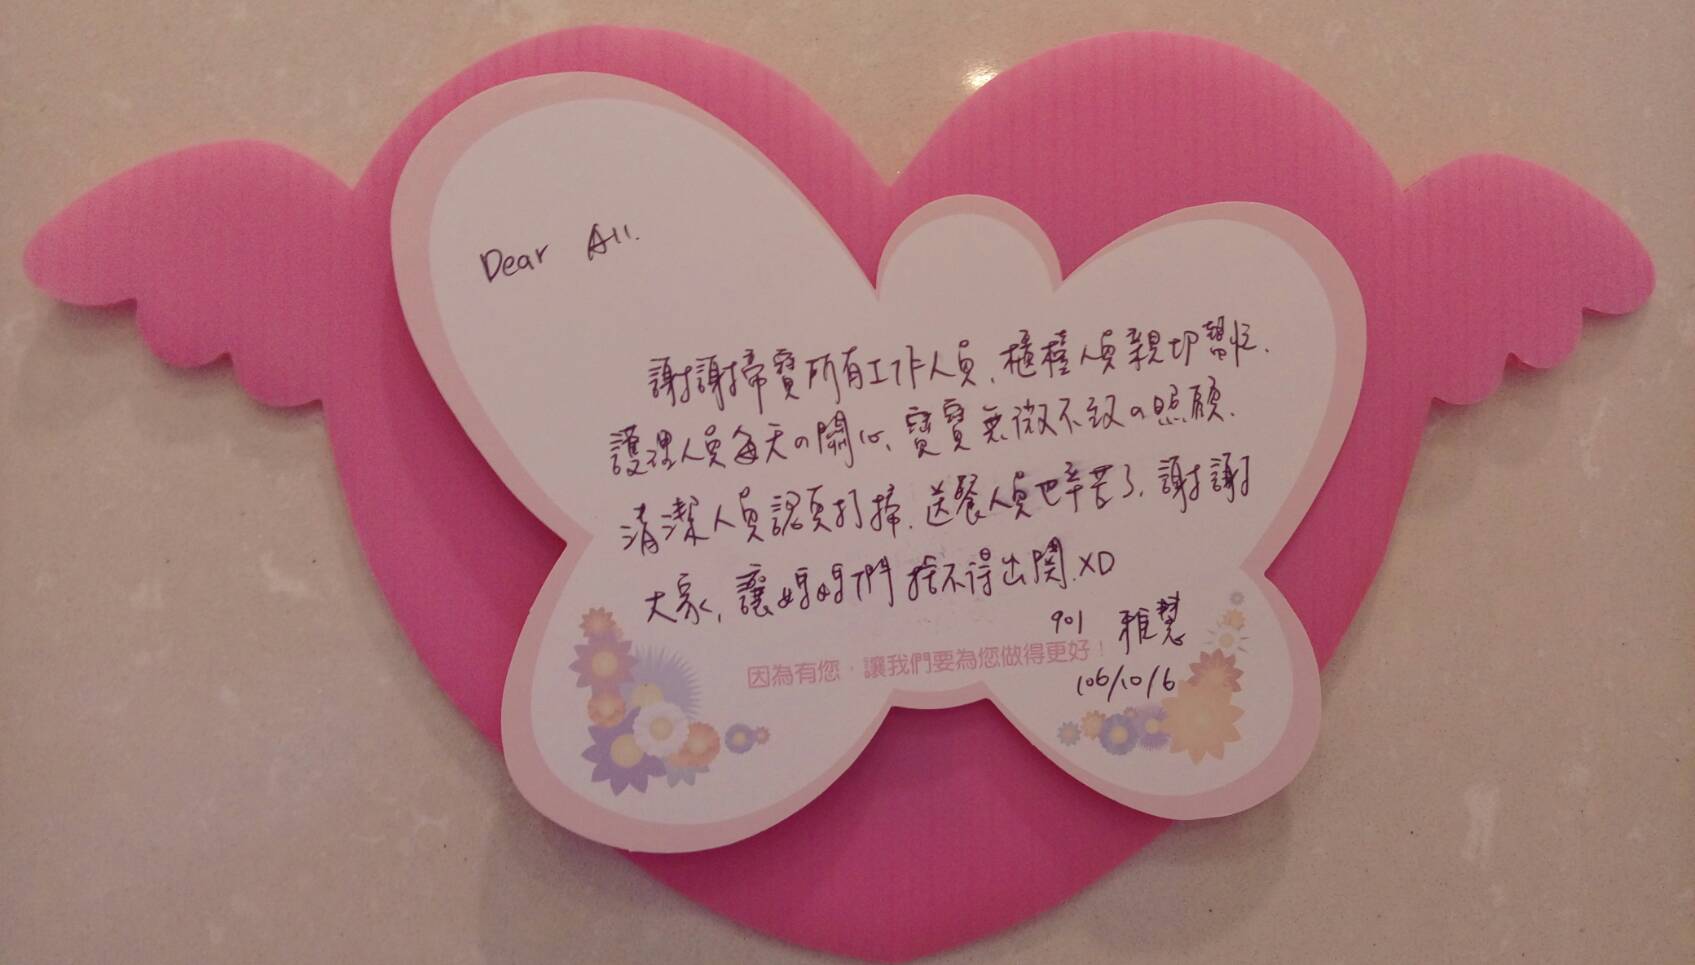 Dear All.
謝謝掃寶所有工作人員、櫃檯人員親切幫忙.
護理人員每天の關心、寶寶無微不致の照顧.
清潔人員認真打掃、送餐人員也辛苦了、謝謝
大家、讓媽媽們捨不得出關.XD
901 雅慧
因為有您，讓我們要為您做得更好！
106/10/6